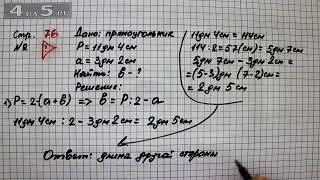 4DA5.RU
Стр. 76
№ 8
Дано: прямоугольник
P = 11дм 4см
a = 3дм 2см
Найти: b - ?
Решение:
1) P = 2·(a+b) => b = P:2-a
11дм 4см : 2 - 3дм 2см = 2дм 5см
11дм 4см = 114см
114:2=57(см)=5дм 7см
5дм 7см - 3дм 2см =
=(5-3)дм (7-2)см =
= 2дм 5см
Ответ: длина другой стороны